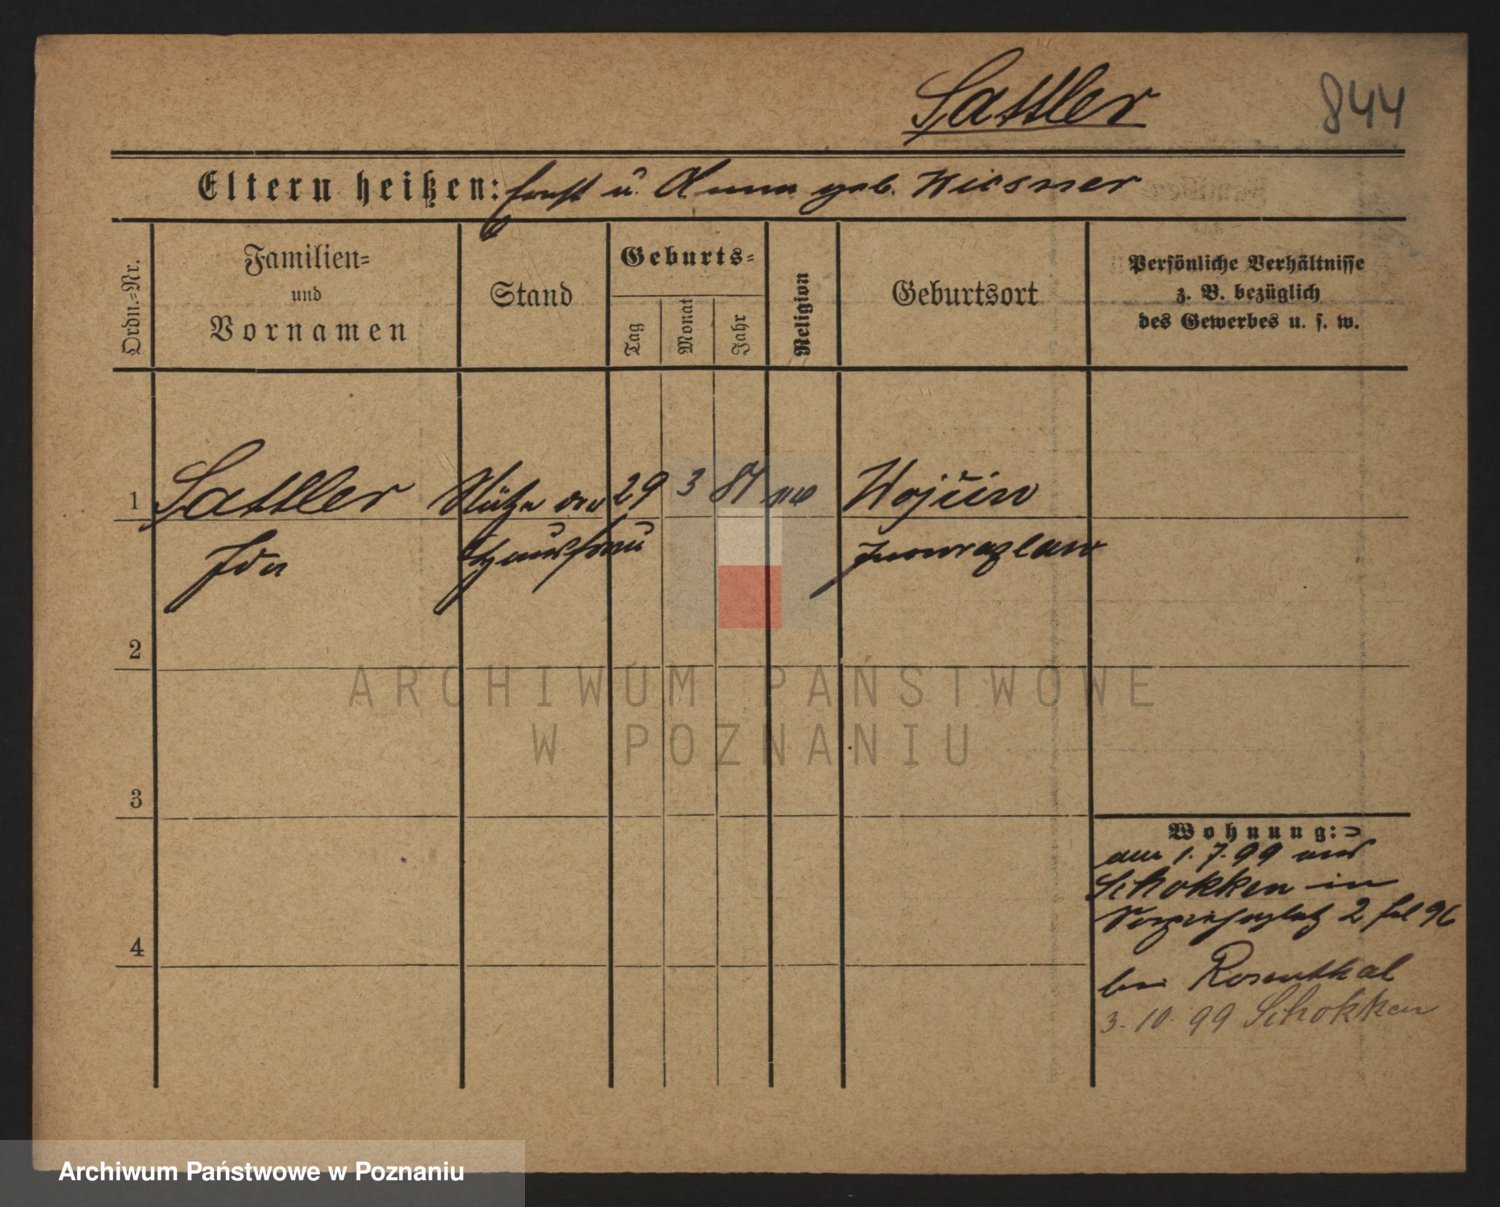 Sattler
844
Eltern heißen: Ernst u. Anna geb. Wiesner
Ordn.=Nr.
Familien=
und
Vornamen
Stand
Geburts=
Tag
Monat
Jahr
Religion
Geburtsort
Persönliche Verhältnisse
z. B. bezüglich
des Gewerbes u. s. w.
1 Sattler Stütze der 29 3 Wojcin
Ida Hausfrau Inowrazlaw
2
3
4
Wohnung:
am 1. 7. 99 aus
Schokken in
2
bei Rosenthal
3. 10. 99 Schokken
ARCHIWUM PAŃSTWOWE
W POZNANIU
Archiwum Państwowe w Poznaniu